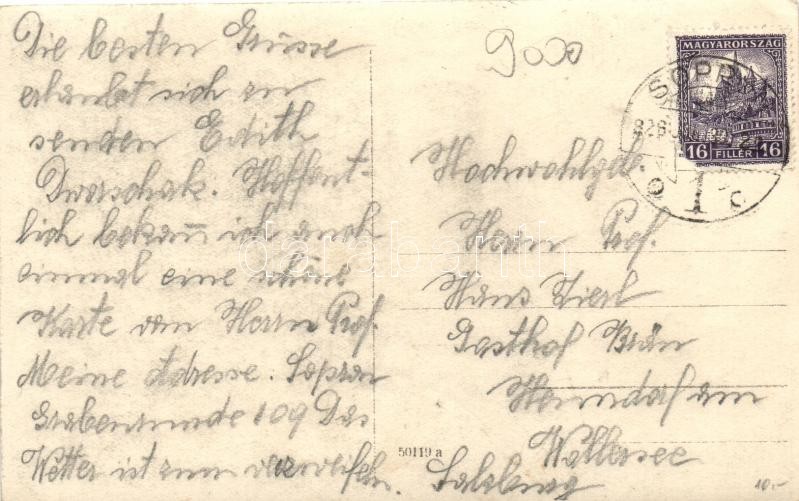 Die besten Grüsse
erlaubt sich zu
senden Edith
Dworschak. Hoffent-
lich bekom̄ ich auch
einmal eine schöne
Karte vom Herrn Prof.
Meine Adresse. Sopron
Grabenrunde 109 Das
Wetter ist zum verzweifeln.
9000
MAGYARORSZÁG
16 FILLÉR 16
SOPRON
Hochwohlgeb.
Herrn Prof.
Hans Zierl
Gasthof Bräu
Henndorf am
Wallersee
Salzburg
50119 a
10.-
darabanth